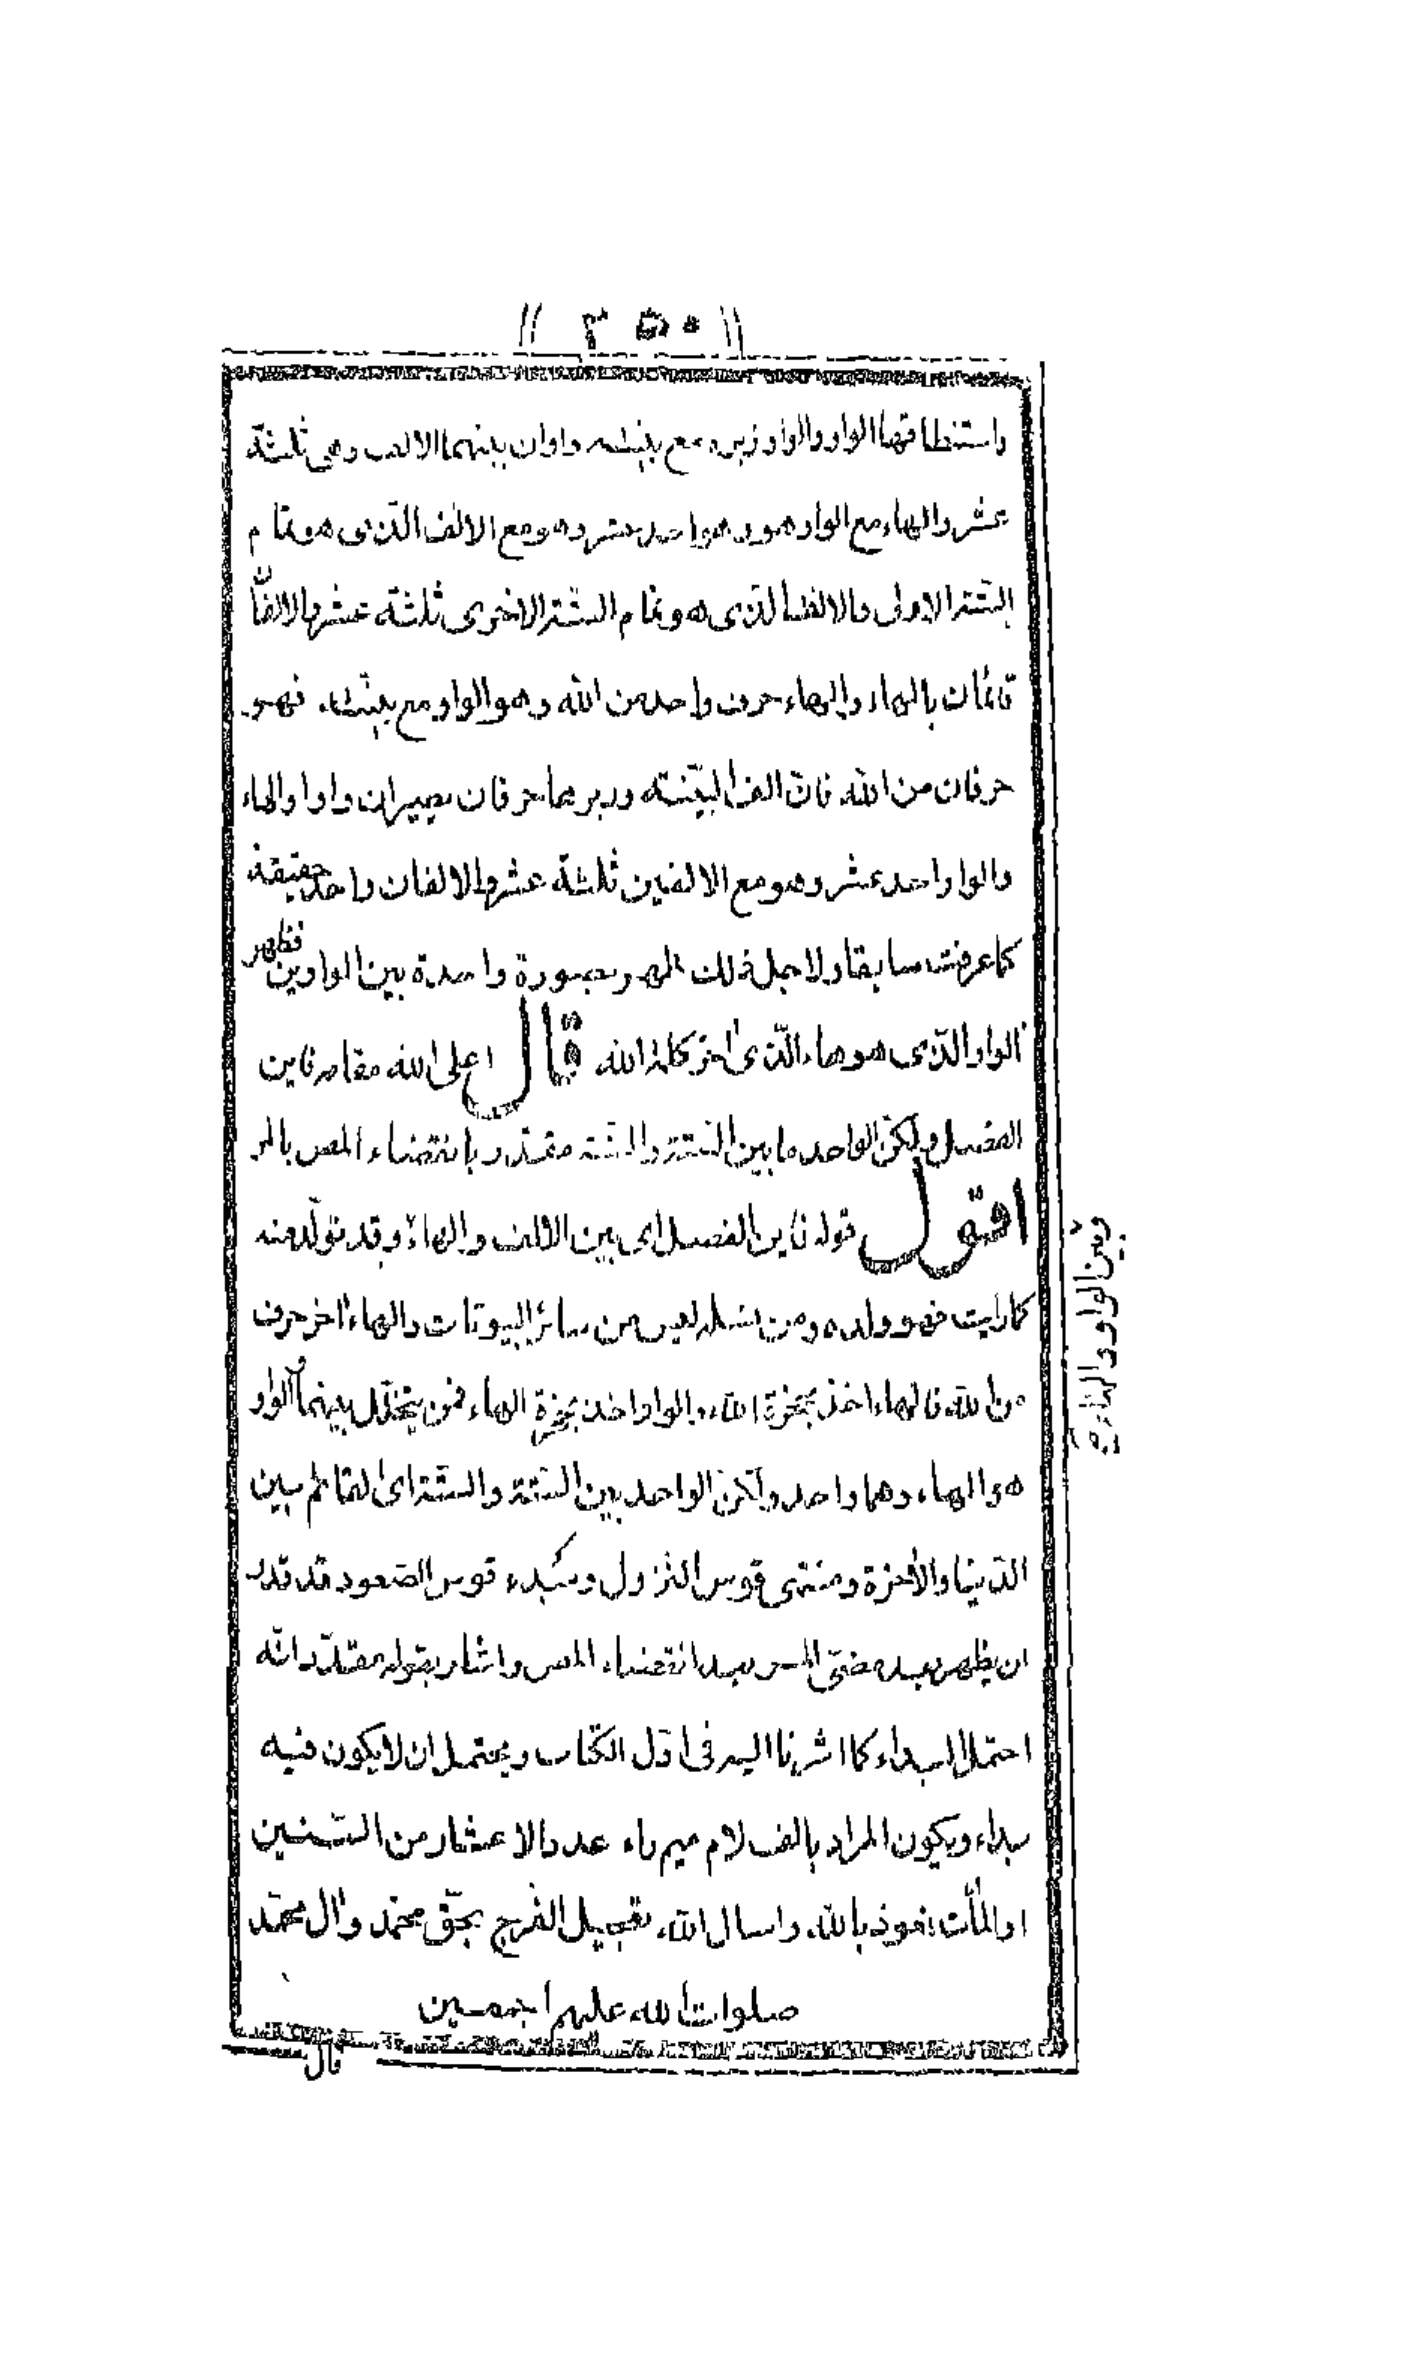 ٣٥٠
واستنطاقها الواو والواو زبره مع بينته واوان بينهما الالف وهى ثلثة
عشر والهاء مع الواو هو وهو احد عشر وهو مع الالف الذى هو تمام
الستة الاولى والالف الذى هو تمام الستة الاخرى ثلثة عشر والالفان
قائمان بالهاء والهاء حرف واحد من الله وهو الواو مع بينته فهو
حرفان من الله فان الف البينة وبرهما حرفان يصيران واوا والهاء
والواو احد عشر وهو مع الالفين ثلثة عشر والالفان واحد حقيقة
كما عرفت سابقا ولاجل ذلك ظهر بصورة واحدة بين الواوين فظهر
الواو الذى هو هاء الذى اخر كلمة الله قال اعلى الله مقامه فاين
الفصل ولكن الواحد ما بين الستة والستة مقدر بانقضاء المص بالمر
اقول قوله فاين الفصل اى بين الالف والهاء وقد تولد منه
كما رايت فهو ولده ومن نسله ليس من سائر البيوتات والهاء اخر حرف
من الله فالهاء اخذ بحجزة الله والواو اخذ بحجزة الهاء فمن يتخلل بينهما والواو
هو الهاء وهما واحد ولكن الواحد بين الستة والستة اى القائم بين
الدنيا والاخرة ومنتهى قوس النزول ومبدء قوس الصعود قد قدر
ان يظهر بعد مضى المر بعد انقضاء المص واشار بقوله مقدر انه
احتمل البداء كما اشرنا اليه فى اول الكتاب ويحتمل ان لا يكون فيه
بداء ويكون المراد بالف لام ميم راء عدد الاعشار من السنين
او المأت نعوذ بالله واسال الله تعجيل الفرج بحق محمد وآل محمد
صلوات الله عليهم اجمعين
قال
وبين الواو والهاء